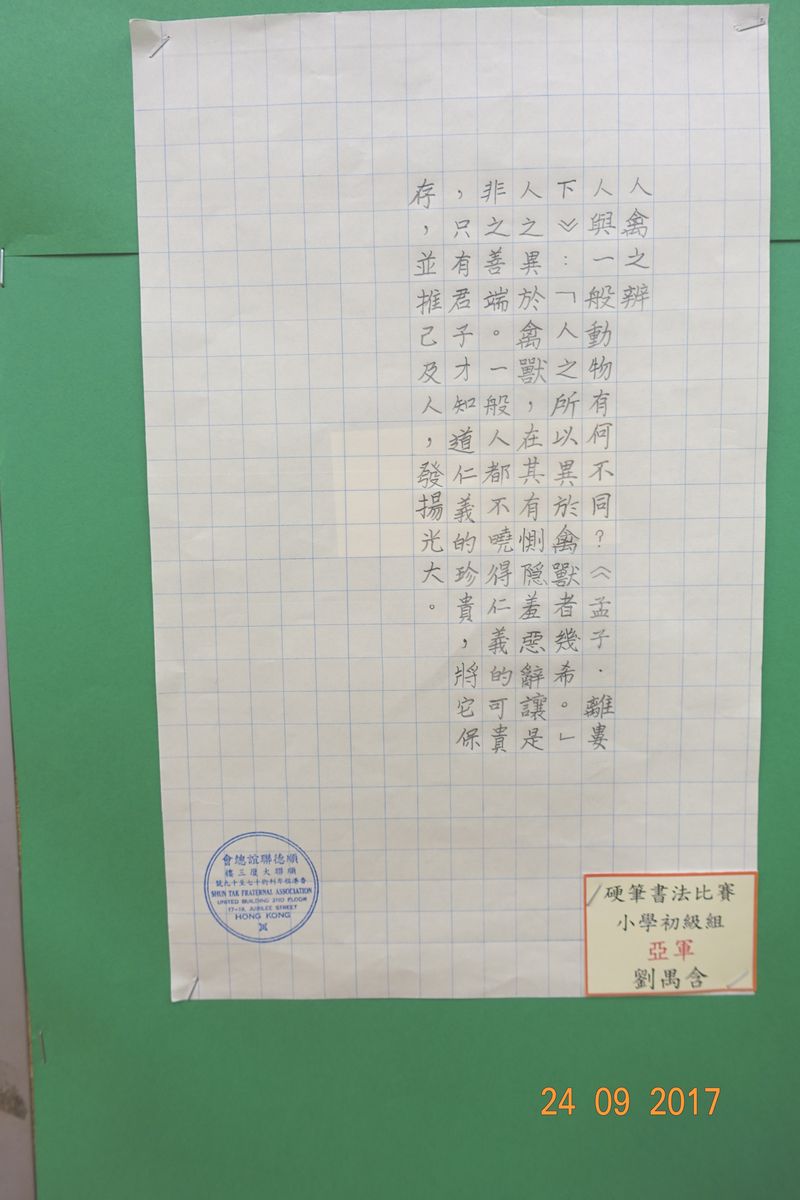 人禽之辨
人與一般動物有何不同？《孟子·離婁
下》：「人之所以異於禽獸者幾希。」
人之異於禽獸，在其有惻隱羞惡辭讓是
非之善端。一般人都不曉得仁義的可貴
，只有君子才知道仁義的珍貴，將它保
存，並推己及人，發揚光大。
會總誼聯德順
樓三厦大聯順
號九十至七十街利租港香
SHUN TAK FRATERNAL ASSOCIATION
UNITED BUILDING 2ND FLOOR
17-19, JUBILEE STREET
HONG KONG
硬筆書法比賽
小學初級組
亞軍
劉禺含
24 09 2017